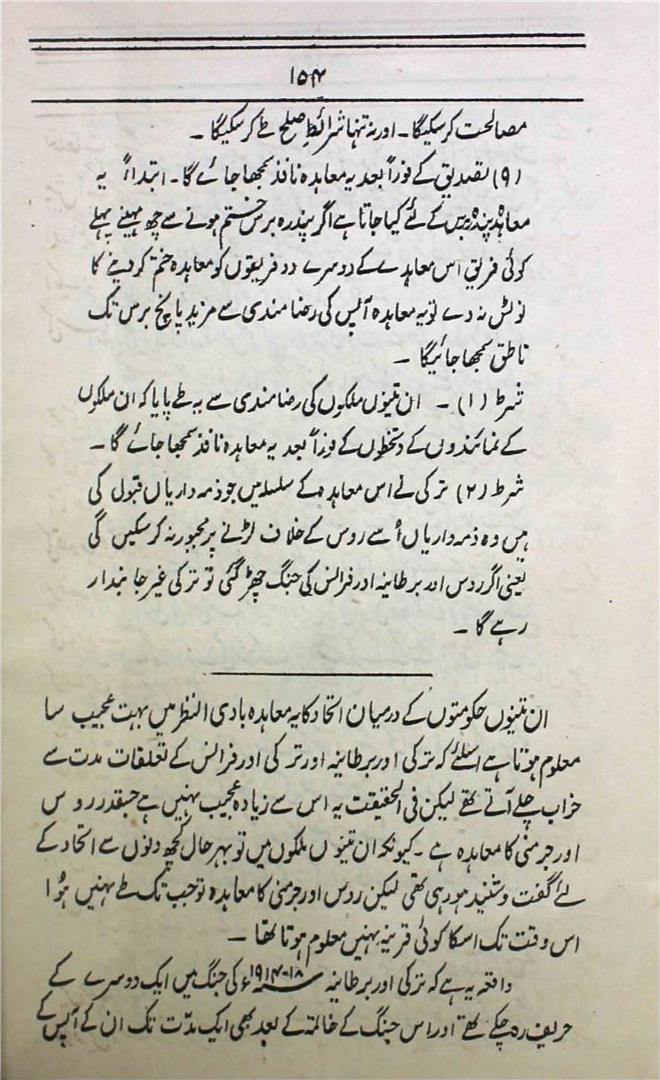 ۱۵۴
مصالحت کرسکیگا۔ اور نہ تنہا شرائطِ صلح طے کرسکیگا۔
(۹) تصدیق کے فوراً بعد یہ معاہدہ نافذ سمجھا جائے گا۔ ابتداءً یہ
معاہدہ پندرہ برس کے لئے کیا جاتا ہے اگر پندرہ برس ختم ہونے سے چھ مہینے پہلے
کوئی فریق اس معاہدے کے دوسرے دو فریقوں کو معاہدہ ختم کر دینے کا
نوٹس نہ دے تو یہ معاہدہ آپس کی رضامندی سے مزید پانچ برس تک
ناطق سمجھا جائیگا ۔
شرط (۱) ۔ ان تینوں ملکوں کی رضامندی سے یہ طے پایا کہ ان ملکوں
کے نمائندوں کے دستخطوں کے فوراً بعد یہ معاہدہ نافذ سمجھا جائے گا۔
شرط (۲) ترکی نے اس معاہدہ کے سلسلہ میں جو ذمہ داریاں قبول کی
ہیں وہ ذمہ داریاں اُسے روس کے خلاف لڑنے پر مجبور نہ کرسکیں گی
یعنی اگر روس اور برطانیہ اور فرانس کی جنگ چھڑ گئی تو ترکی غیر جانبدار
رہے گا ۔
ان تینوں حکومتوں کے درمیان اتحاد کا یہ معاہدہ بادی النظر میں بہت عجیب سا
معلوم ہوتا ہے اسلئے کہ ترکی اور برطانیہ اور ترکی اور فرانس کے تعلقات مدت سے
خراب چلے آتے تھے لیکن فی الحقیقت یہ اس سے زیادہ عجیب نہیں ہے جسقدر روس
اور جرمنی کا معاہدہ ہے ۔ کیونکہ ان تینوں ملکوں میں تو بہر حال کچھ دنوں سے اتحاد کے
لئے گفت و شنید ہو رہی تھی لیکن روس اور جرمنی کا معاہدہ تو جب تک طے نہیں ہُوا
اس وقت تک اسکا کوئی قرینہ نہیں معلوم ہوتا تھا ۔
واقعہ یہ ہے کہ ترکی اور برطانیہ ۱۸-۱۹۱۴ء کی جنگ میں ایک دوسرے کے
حریف رہ چکے تھے اور اس جنگ کے خاتمہ کے بعد بھی ایک مدّت تک ان کے آپس کے